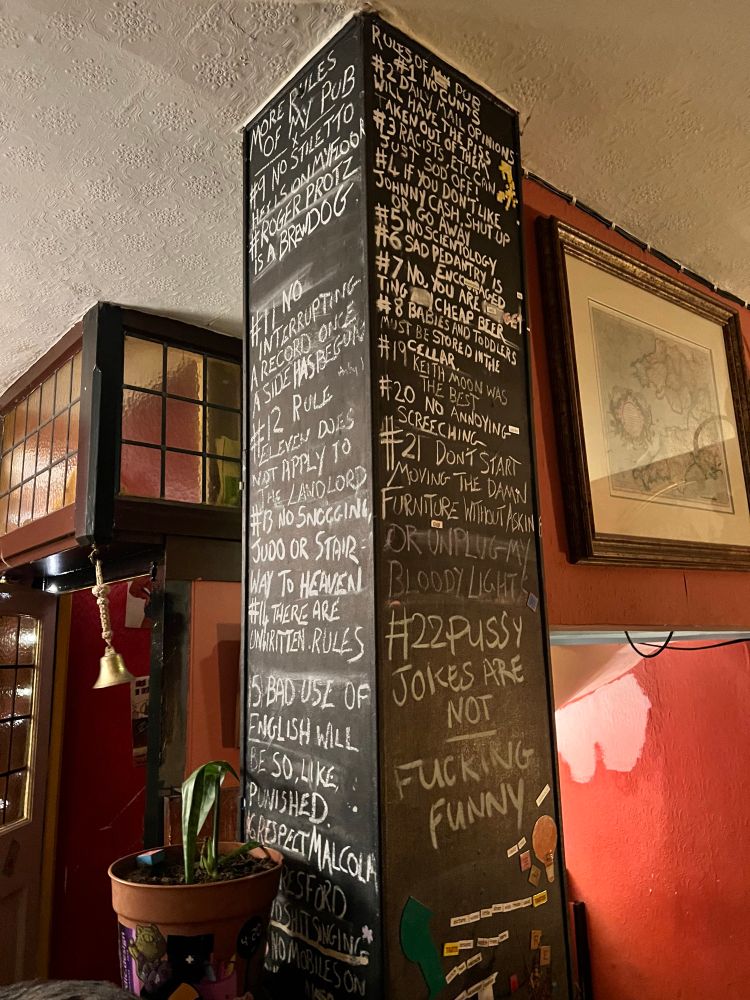 MORE RULES
OF MY PUB
#9 NO STILETTO
HEELS ON MY FLOOR
#ROGER PROTZ
IS A BREWDOG
#11 NO
INTERRUPTING
A RECORD ONCE
A SIDE HAS BEGUN
#12 RULE
ELEVEN DOES
NOT APPLY TO
THE LANDLORD
#13 NO SNOGGING,
JUDO OR STAIR-
WAY TO HEAVEN
#14 THERE ARE
UNWRITTEN RULES
15 BAD USE OF
ENGLISH WILL
BE SO, LIKE,
PUNISHED
RESPECT MALCOLM
NO SHIT SINGING
NO MOBILES ON
RULES OF MY PUB
#1 NO CUNTS
#2 DAILY MAIL OPINIONS
WILL HAVE THE PISS
TAKEN OUT OF THEM
#3 RACISTS ETC CAN
JUST SOD OFF
#4 IF YOU DON'T LIKE
JOHNNY CASH, SHUT UP
OR GO AWAY
#5 NO SCIENTOLOGY
#6 SAD PEDANTRY IS
ENCOURAGED
#7 NO, YOU ARE GET
TING CHEAP BEER
#8 BABIES AND TODDLERS
MUST BE STORED IN THE
CELLAR
#19 KEITH MOON WAS
THE BEST
#20 NO ANNOYING
SCREECHING
#21 DON'T START
MOVING THE DAMN
FURNITURE WITHOUT ASKIN
OR UNPLUG MY
BLOODY LIGHTS
#22 PUSSY
JOKES ARE
NOT
FUCKING
FUNNY